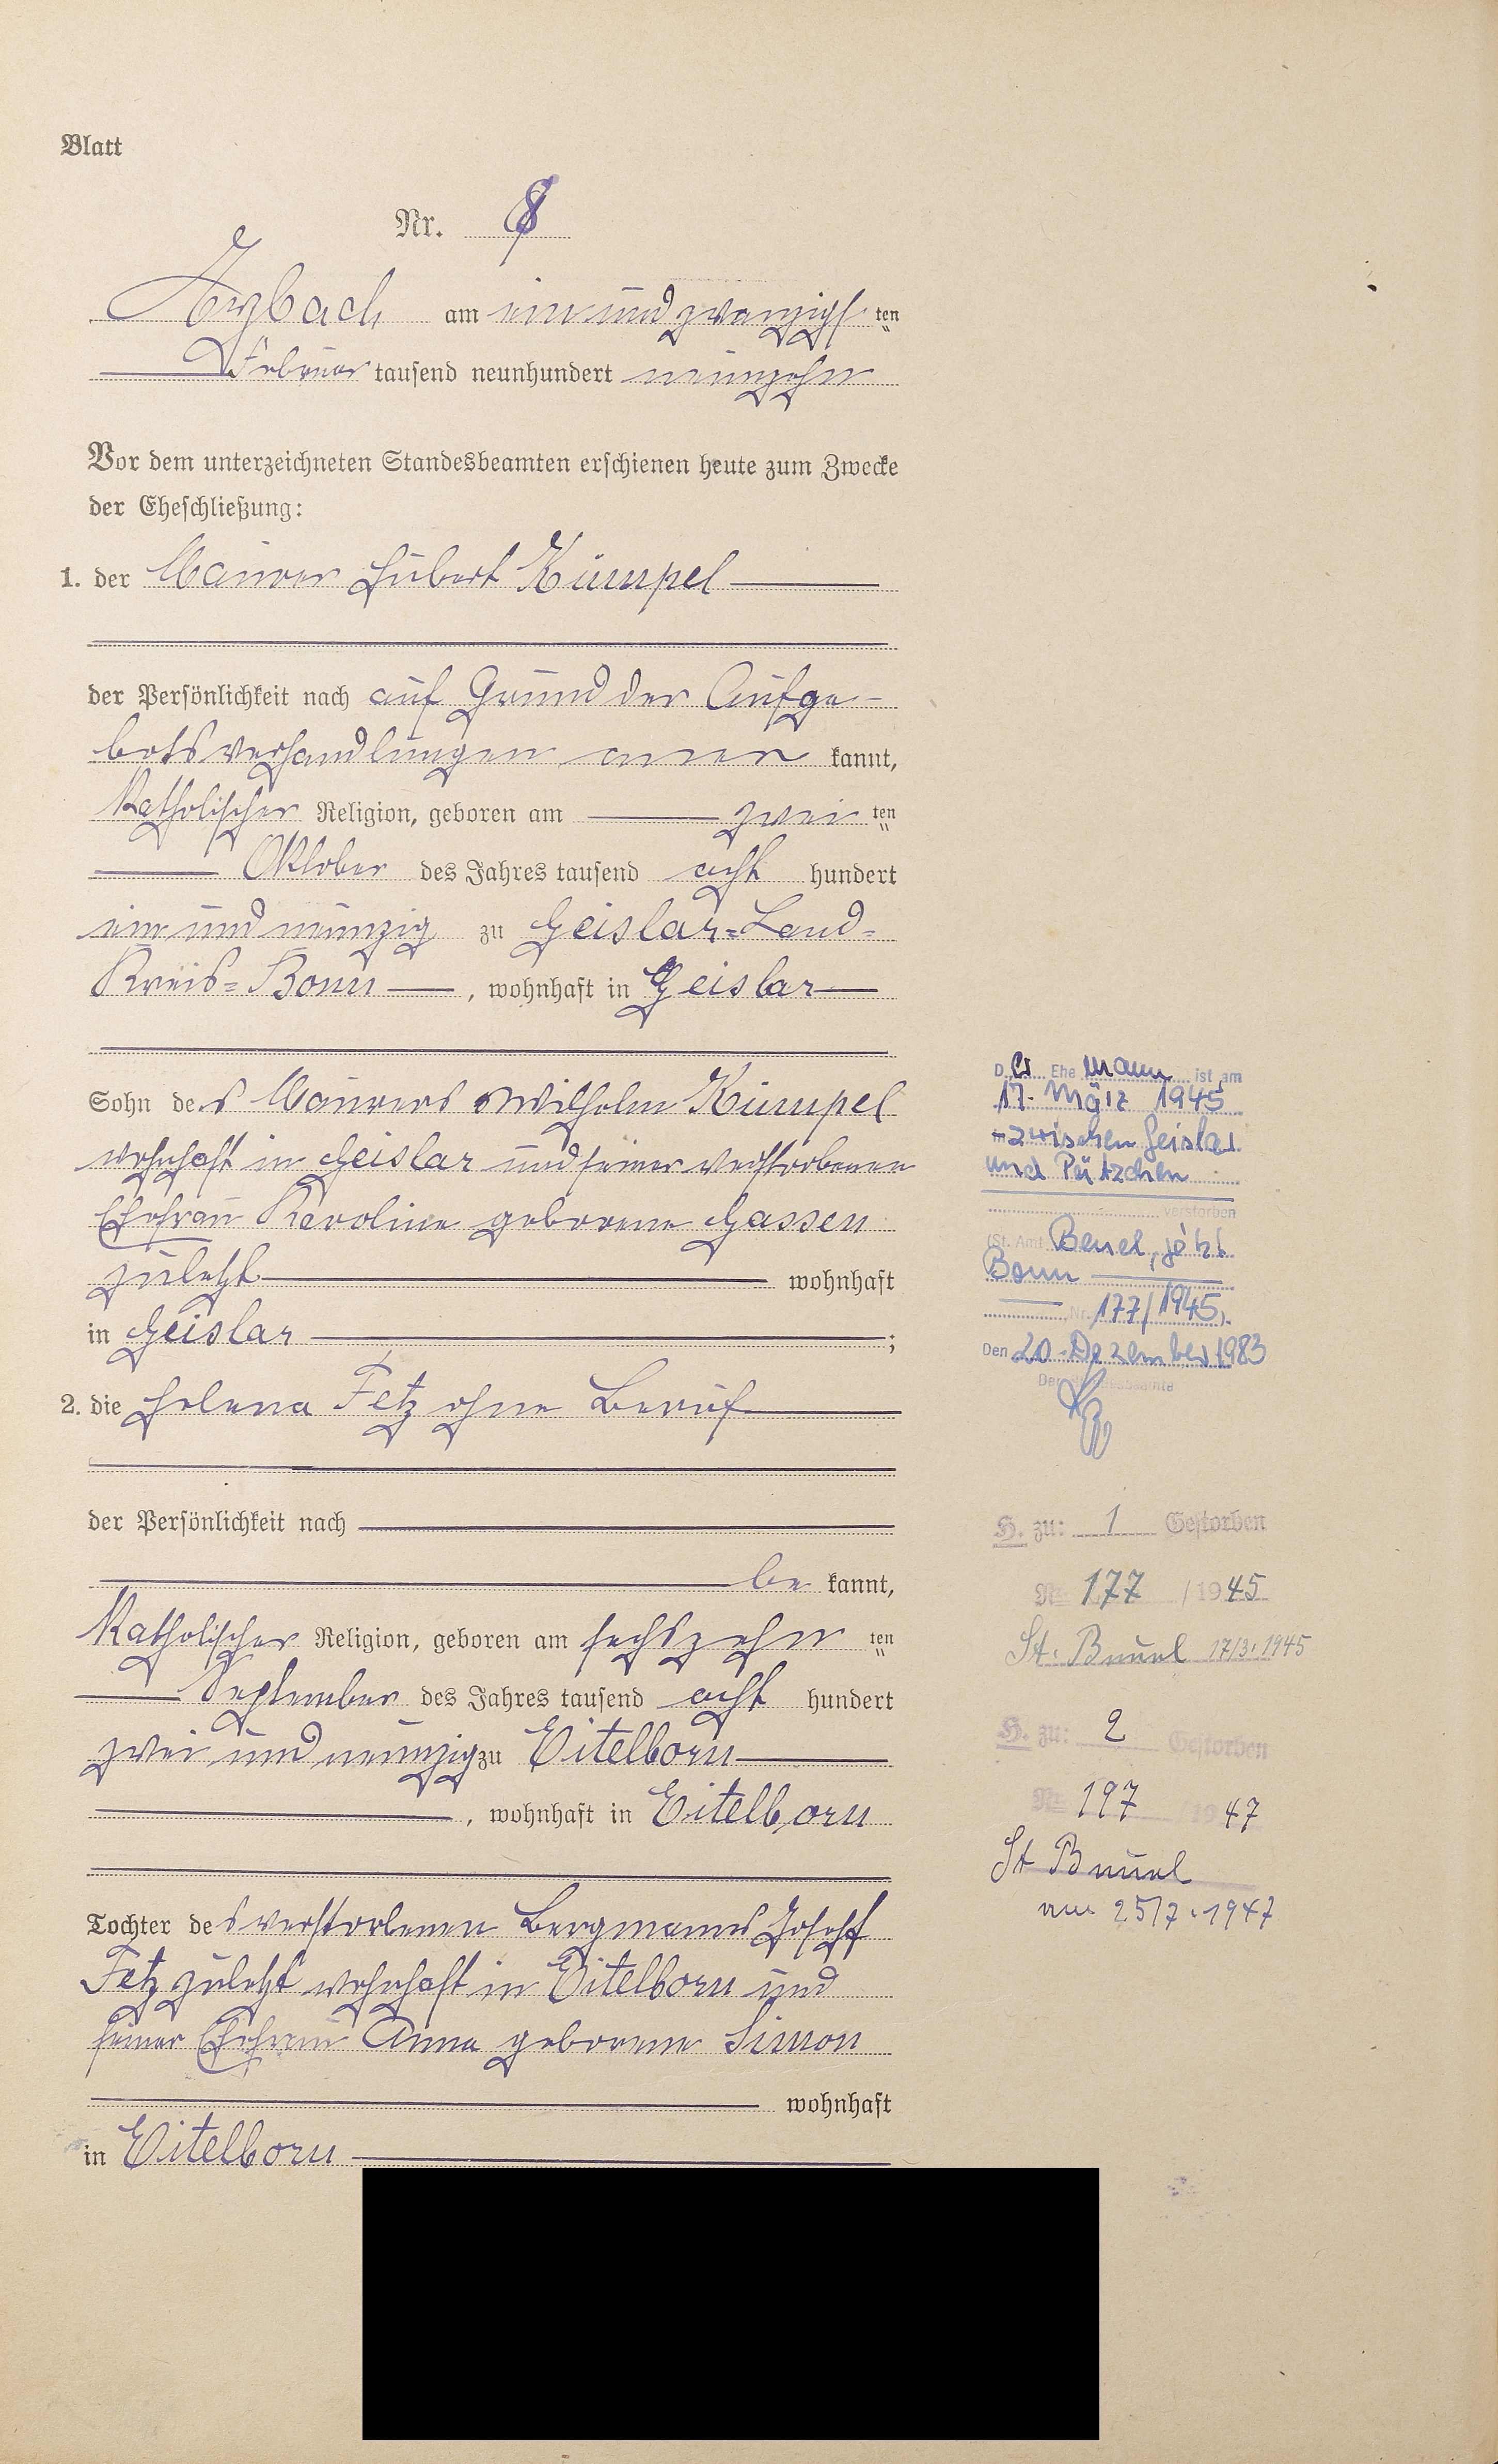 Blatt
Nr. 8
Arzbach am ein und zwanzigsten
Februar tausend neunhundert neunzehn
Vor dem unterzeichneten Standesbeamten erschienen heute zum Zwecke
der Eheschließung:
1. der Maurer Hubert Kümpel
der Persönlichkeit nach auf Grund der Aufge-
botsverhandlungen aner kannt,
katholischer Religion, geboren am zweiten
Oktober des Jahres tausend acht hundert
ein und neunzig zu Geislar-Land-
kreis-Bonn, wohnhaft in Geislar
Sohn des Maurers Wilhelm Kümpel
wohnhaft in Geislar und seiner verstorbenen
Ehefrau Karoline geborene Gassen
zuletzt wohnhaft
in Geislar;
2. die Helena Fetz ohne Beruf
der Persönlichkeit nach
be kannt,
katholischer Religion, geboren am sechszehnten
September des Jahres tausend acht hundert
zwei und neunzig zu Eitelborn
, wohnhaft in Eitelborn
Tochter des verstorbenen Bergmanns Joseph
Fetz zuletzt wohnhaft in Eitelborn und
seiner Ehefrau Anna geborene Simon
wohnhaft
in Eitelborn
Der Ehemann ist am
17. März 1945
zwischen Geislar
und Pützchen
verstorben
(St. Amt Beuel, jetzt
Bonn
Nr. 177/1945).
Den 20. Dezember 1983
Der Standesbeamte
H. zu: 1 Gestorben
Nr. 177 / 1945
St. Beuel 17/3. 1945
H. zu: 2 Gestorben
Nr. 197 / 1947
St Beuel
am 25/7. 1947